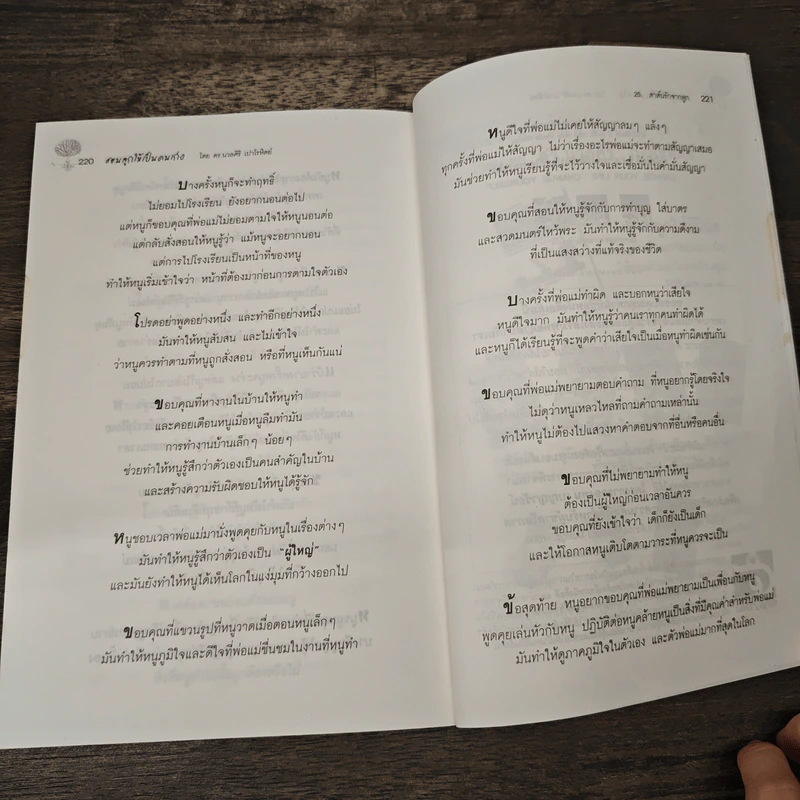 220 สอนลูกให้เป็นคนเก่ง โดย ดร.นวลศิริ เปาโรหิตย์
บางครั้งหนูก็จะทำฤทธิ์
ไม่ยอมไปโรงเรียน ยังอยากนอนต่อไป
แต่หนูก็ขอบคุณที่พ่อแม่ไม่ยอมตามใจให้หนูนอนต่อ
แต่กลับสั่งสอนให้หนูรู้ว่า แม้หนูจะอยากนอน
แต่การไปโรงเรียนเป็นหน้าที่ของหนู
ทำให้หนูเริ่มเข้าใจว่า หน้าที่ต้องมาก่อนการตามใจตัวเอง
โปรดอย่าพูดอย่างหนึ่ง และทำอีกอย่างหนึ่ง
มันทำให้หนูสับสน และไม่เข้าใจ
ว่าหนูควรทำตามที่หนูถูกสั่งสอน หรือที่หนูเห็นกันแน่
ขอบคุณที่หางานในบ้านให้หนูทำ
และคอยเตือนหนูเมื่อหนูลืมทำมัน
การทำงานบ้านเล็กๆ น้อยๆ
ช่วยทำให้หนูรู้สึกว่าตัวเองเป็นคนสำคัญในบ้าน
และสร้างความรับผิดชอบให้หนูได้รู้จัก
หนูชอบเวลาพ่อแม่มานั่งพูดคุยกับหนูในเรื่องต่างๆ
มันทำให้หนูรู้สึกว่าตัวเองเป็น "ผู้ใหญ่"
และมันยังทำให้หนูได้เห็นโลกในแง่มุมที่กว้างออกไป
ขอบคุณที่แขวนรูปที่หนูวาดเมื่อตอนหนูเล็กๆ
มันทำให้หนูภูมิใจและดีใจที่พ่อแม่ชื่นชมในงานที่หนูทำ
25. สาส์นรักจากลูก 221
หนูดีใจที่พ่อแม่ไม่เคยให้สัญญาลมๆ แล้งๆ
ทุกครั้งที่พ่อแม่ให้สัญญา ไม่ว่าเรื่องอะไรพ่อแม่จะทำตามสัญญาเสมอ
มันช่วยทำให้หนูเรียนรู้ที่จะไว้วางใจและเชื่อมั่นในคำมั่นสัญญา
ขอบคุณที่สอนให้หนูรู้จักกับการทำบุญ ใส่บาตร
และสวดมนตร์ไหว้พระ มันทำให้หนูรู้จักกับความดีงาม
ที่เป็นแสงสว่างที่แท้จริงของชีวิต
บางครั้งที่พ่อแม่ทำผิด และบอกหนูว่าเสียใจ
หนูดีใจมาก มันทำให้หนูรู้ว่าคนเราทุกคนทำผิดได้
และหนูก็ได้เรียนรู้ที่จะพูดคำว่าเสียใจเป็นเมื่อหนูทำผิดเช่นกัน
ขอบคุณที่พ่อแม่พยายามตอบคำถาม ที่หนูอยากรู้โดยจริงใจ
ไม่ดุว่าหนูเหลวไหลที่ถามคำถามเหล่านั้น
ทำให้หนูไม่ต้องไปแสวงหาคำตอบจากที่อื่นหรือคนอื่น
ขอบคุณที่ไม่พยายามทำให้หนู
ต้องเป็นผู้ใหญ่ก่อนเวลาอันควร
ขอบคุณที่ยังเข้าใจว่า เด็กก็ยังเป็นเด็ก
และให้โอกาสหนูเติบโตตามวาระที่หนูควรจะเป็น
ข้อสุดท้าย หนูอยากขอบคุณที่พ่อแม่พยายามเป็นเพื่อนกับหนู
พูดคุยเล่นหัวกับหนู ปฏิบัติต่อหนูคล้ายหนูเป็นสิ่งที่มีคุณค่าสำหรับพ่อแม่
มันทำให้ดูภาคภูมิใจในตัวเอง และตัวพ่อแม่มากที่สุดในโลก